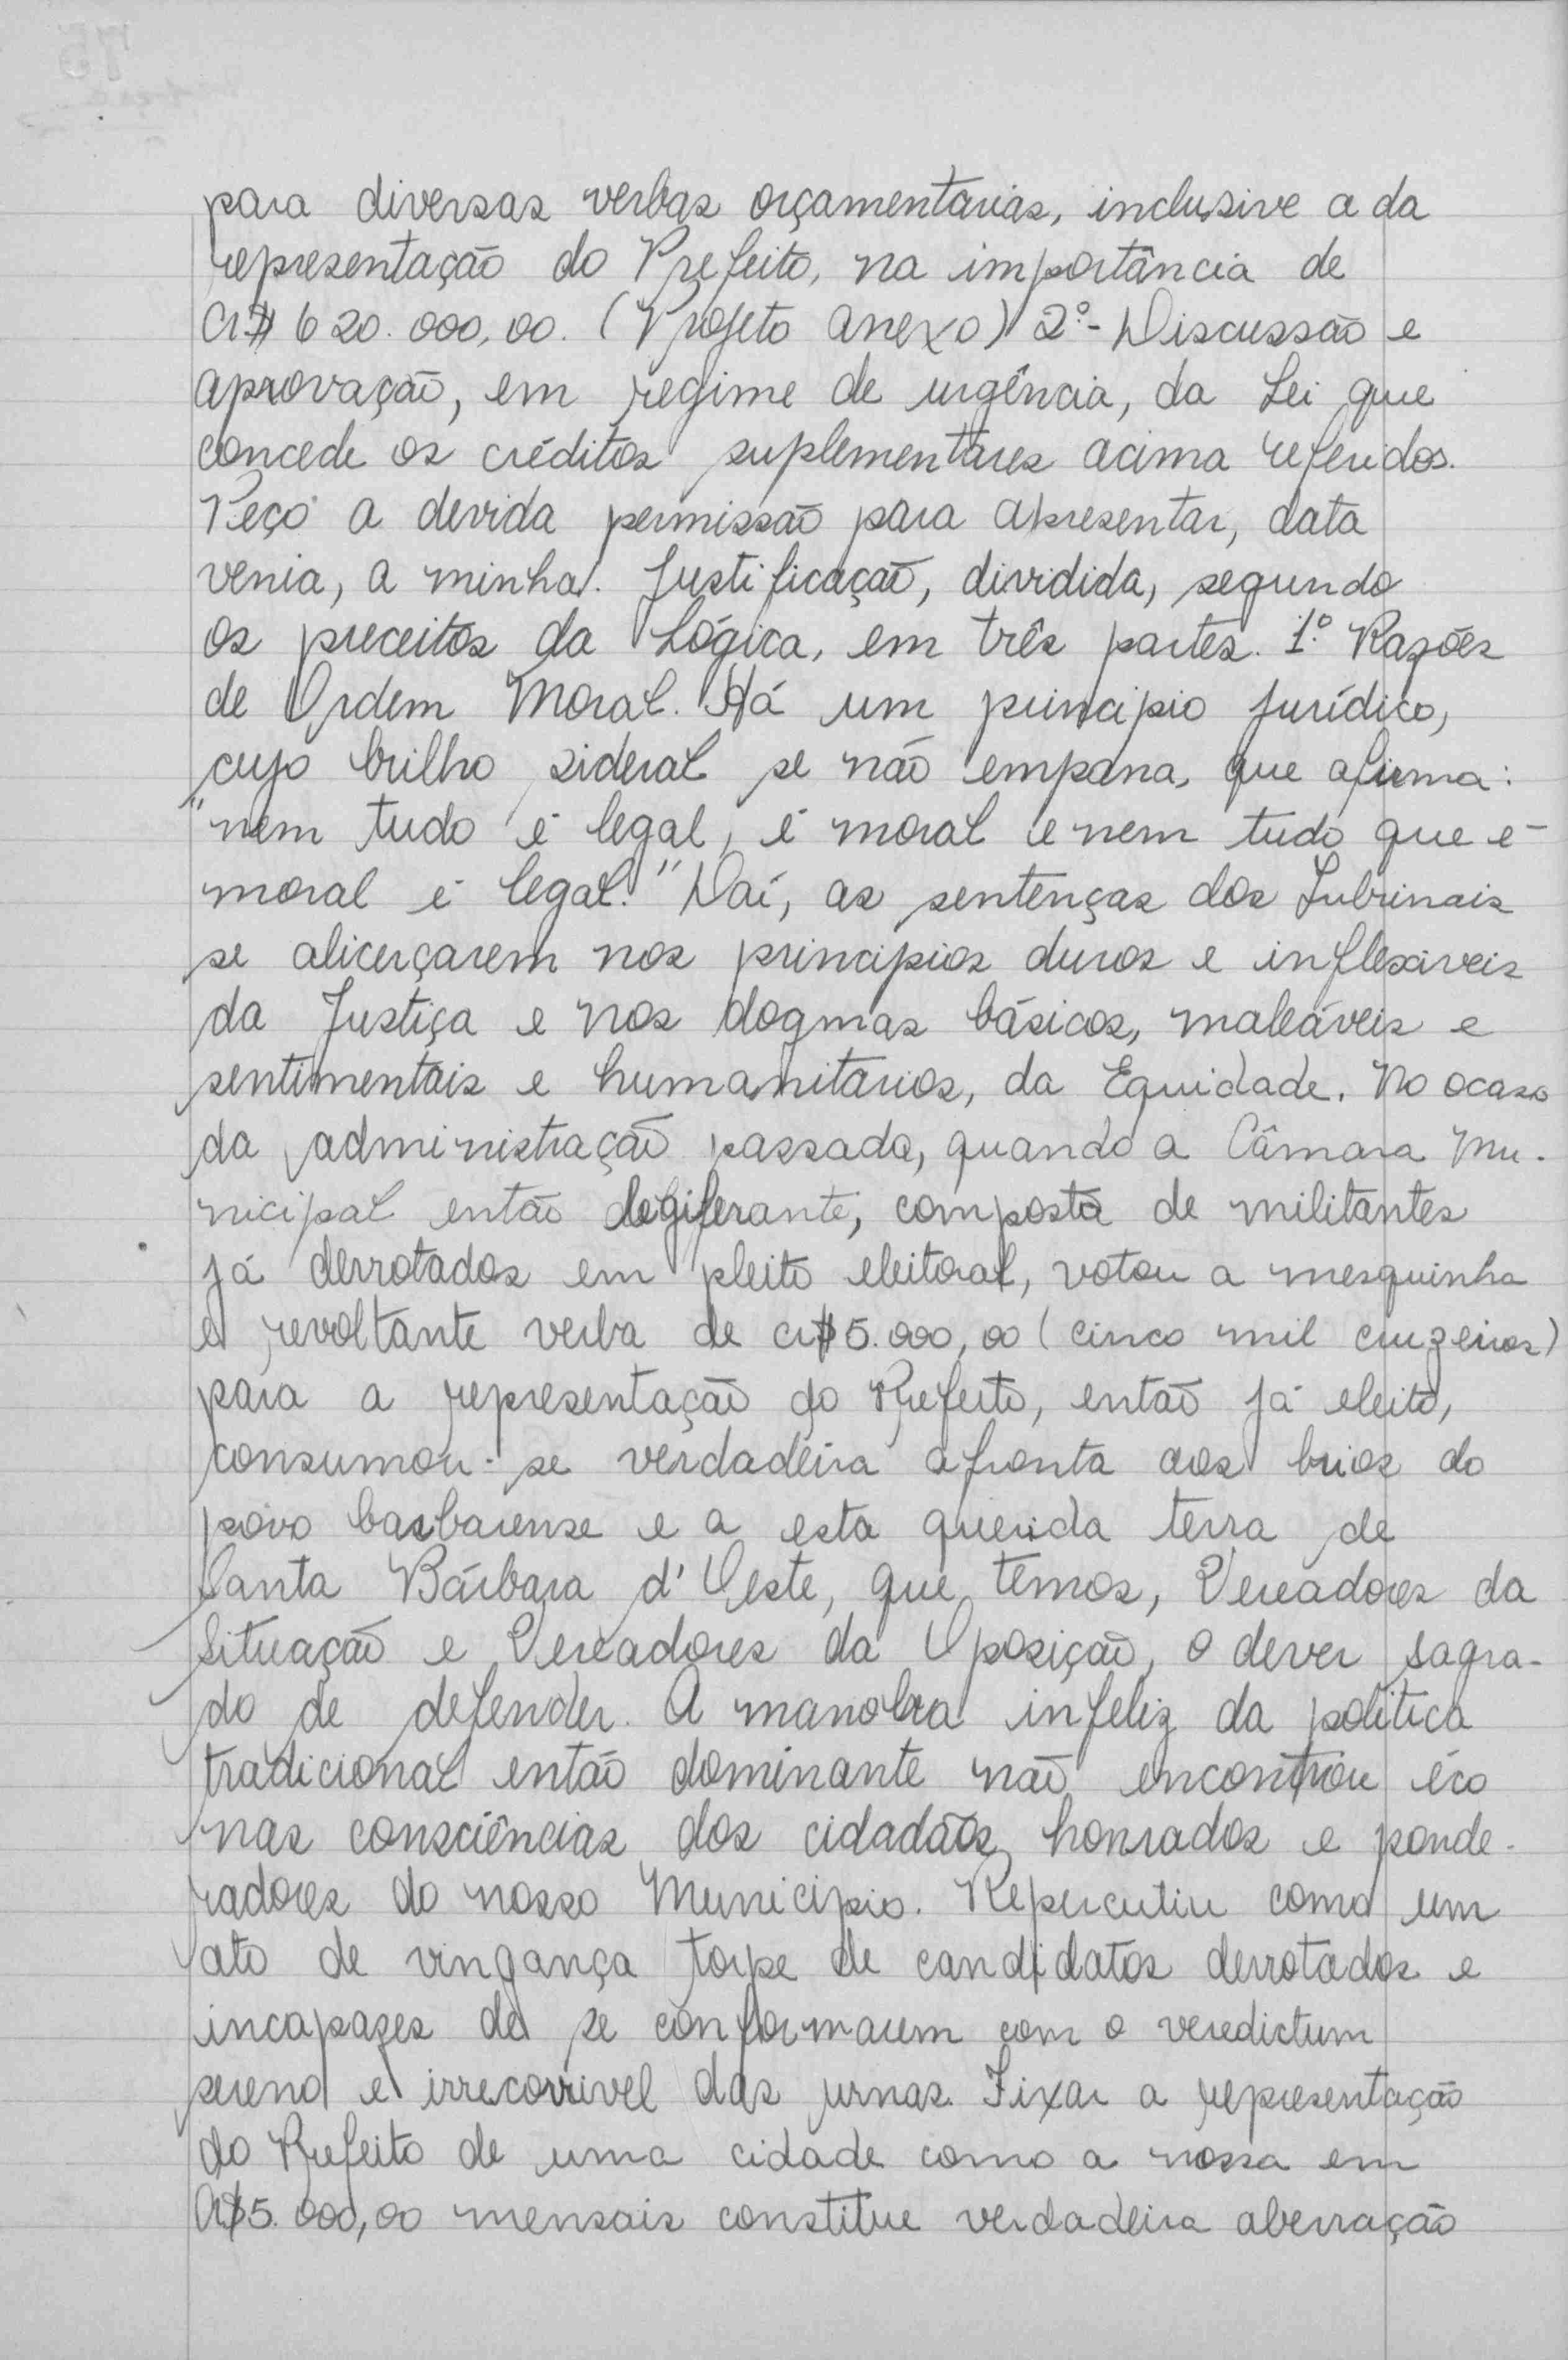 para diversas verbas orçamentárias, inclusive a da
representação do Prefeito, na importância de
Cr$ 620.000,00. (Projeto anexo) 2º- Discussão e
aprovação, em regime de urgência, da Lei que
concede os créditos suplementares acima referidos.
Peço a devida permissão para apresentar, data
venia, a minha. Justificação, dividida, segundo
os preceitos da Lógica, em três partes. 1º Razões
de Ordem Moral. Há um principio jurídico,
cujo brilho sideral se não empana, que afirma:
"nem tudo é legal, é moral e nem tudo que é
moral é legal." Daí, as sentenças dos Tubrinais
se alicerçarem nos principios duros e inflexiveis
da Justiça e nos dogmas básicos, maleáveis e
sentimentais e humanitários, da Equidade. No ocaso
da administração passada, quando a Câmara Mu-
nicipal então legiferante, composta de militantes
já derrotados em pleito eleitoral, votou a mesquinha
e revoltante verba de cr$5.000,00 (cinco mil cruzeiros)
para a representação do Prefeito, então já eleito,
consumou-se verdadeira afronta aos brios do
povo barbarense e a esta querida terra de
Santa Bárbara d'Oeste, que temos, Vereadores da
Situação e Vereadores da Oposição, o dever sagra-
do de defender. A manobra infeliz da politica
tradicional então dominante não encontrou éco
nas consciências dos cidadãos honrados e ponde-
radores do nosso Municipio. Repercutiu como um
ato de vingança torpe de candidatos derrotados e
incapazes de se conformarem com o veredictum
sereno e irrecorrivel das urnas. Fixar a representação
do Prefeito de uma cidade como a nossa em
Cr$5.000,00 mensais constitue verdadeira aberração